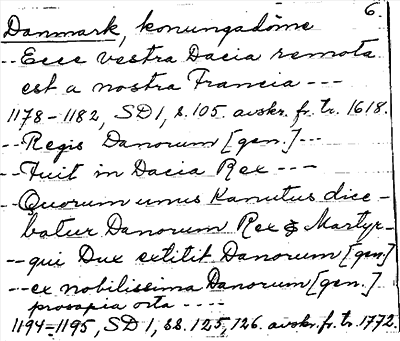 6.
Danmark, konungadöme
-- Ecce vestra Dacia remota
est a nostra Francia ---
1178-1182, SD 1, s. 105. avskr. fr. tr. 1618.
-- Regis Danorum [gen.] ---
-- Fuit in Dacia Rex ---
-- Quorum unus Kanutus dice-
batur Danorum Rex & Martyr--
-- qui Dux extitit Danorum [gen.]
-- ex nobilissima Danorum [gen.]
prosapia orta ----
1194-1195, SD 1, ss. 125, 126. avskr. fr. tr. 1772.